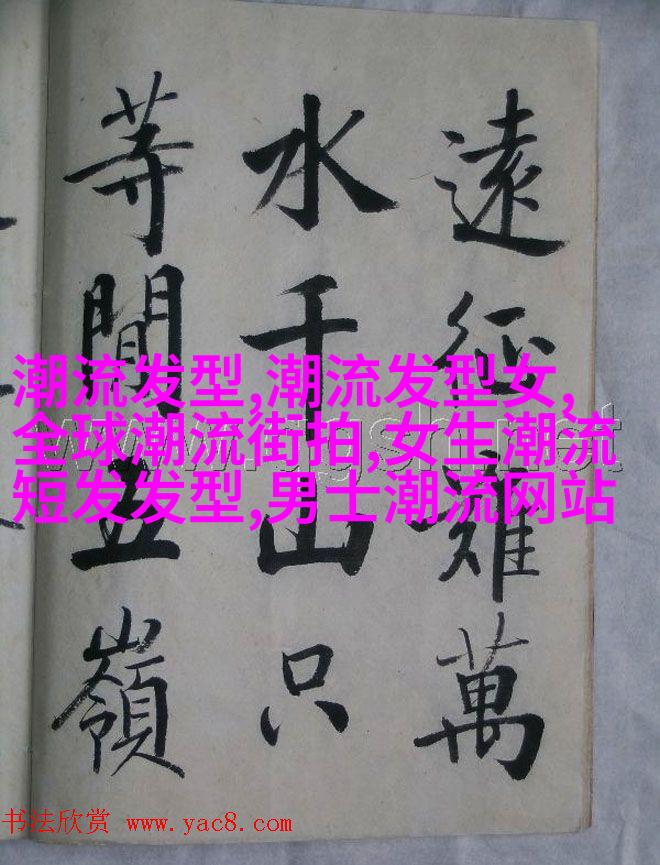 遠征難萬
水千山只
等間五嶺
潮流发型,潮流发型女,
全球潮流街拍,女生潮流
短发发型,男士潮流网站
书法欣赏 www.yac8.com